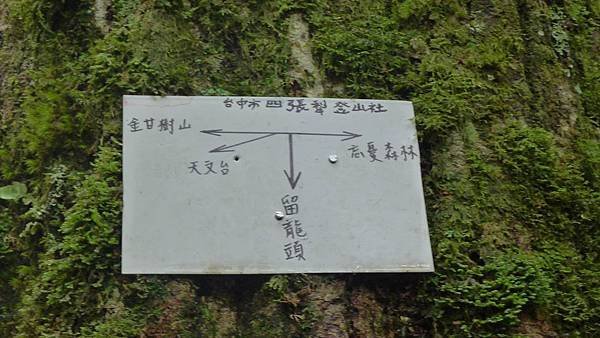 台中市四張犁登山社
金甘樹山
忘憂森林
天文台
留龍頭